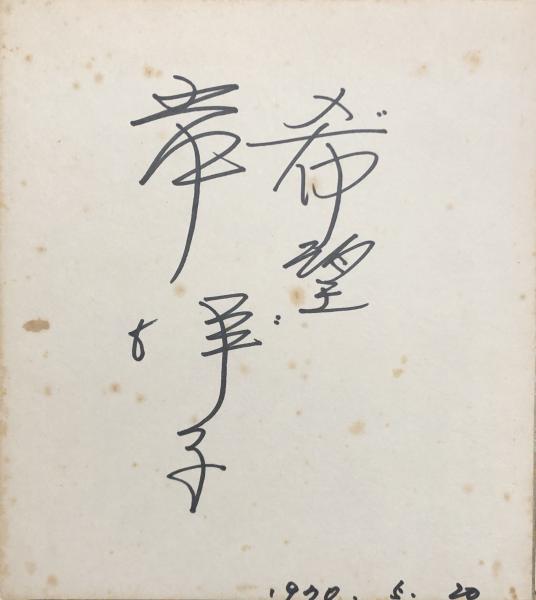 希望
岸洋子
1970. 5. 20